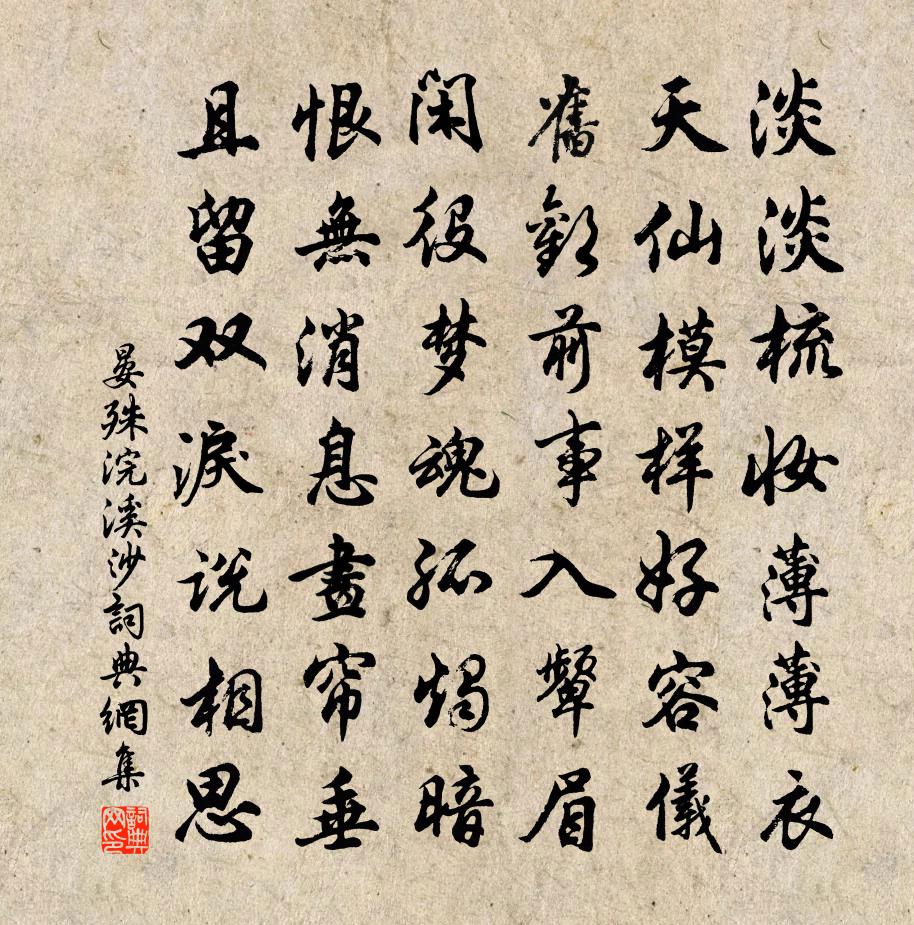 淡淡梳妆薄薄衣
天仙模样好容儀
舊歡前事入颦眉
闲役梦魂孤燭暗
恨無消息畫帘垂
且留双淚说相思
晏殊浣溪沙詞典網集
詞典网印